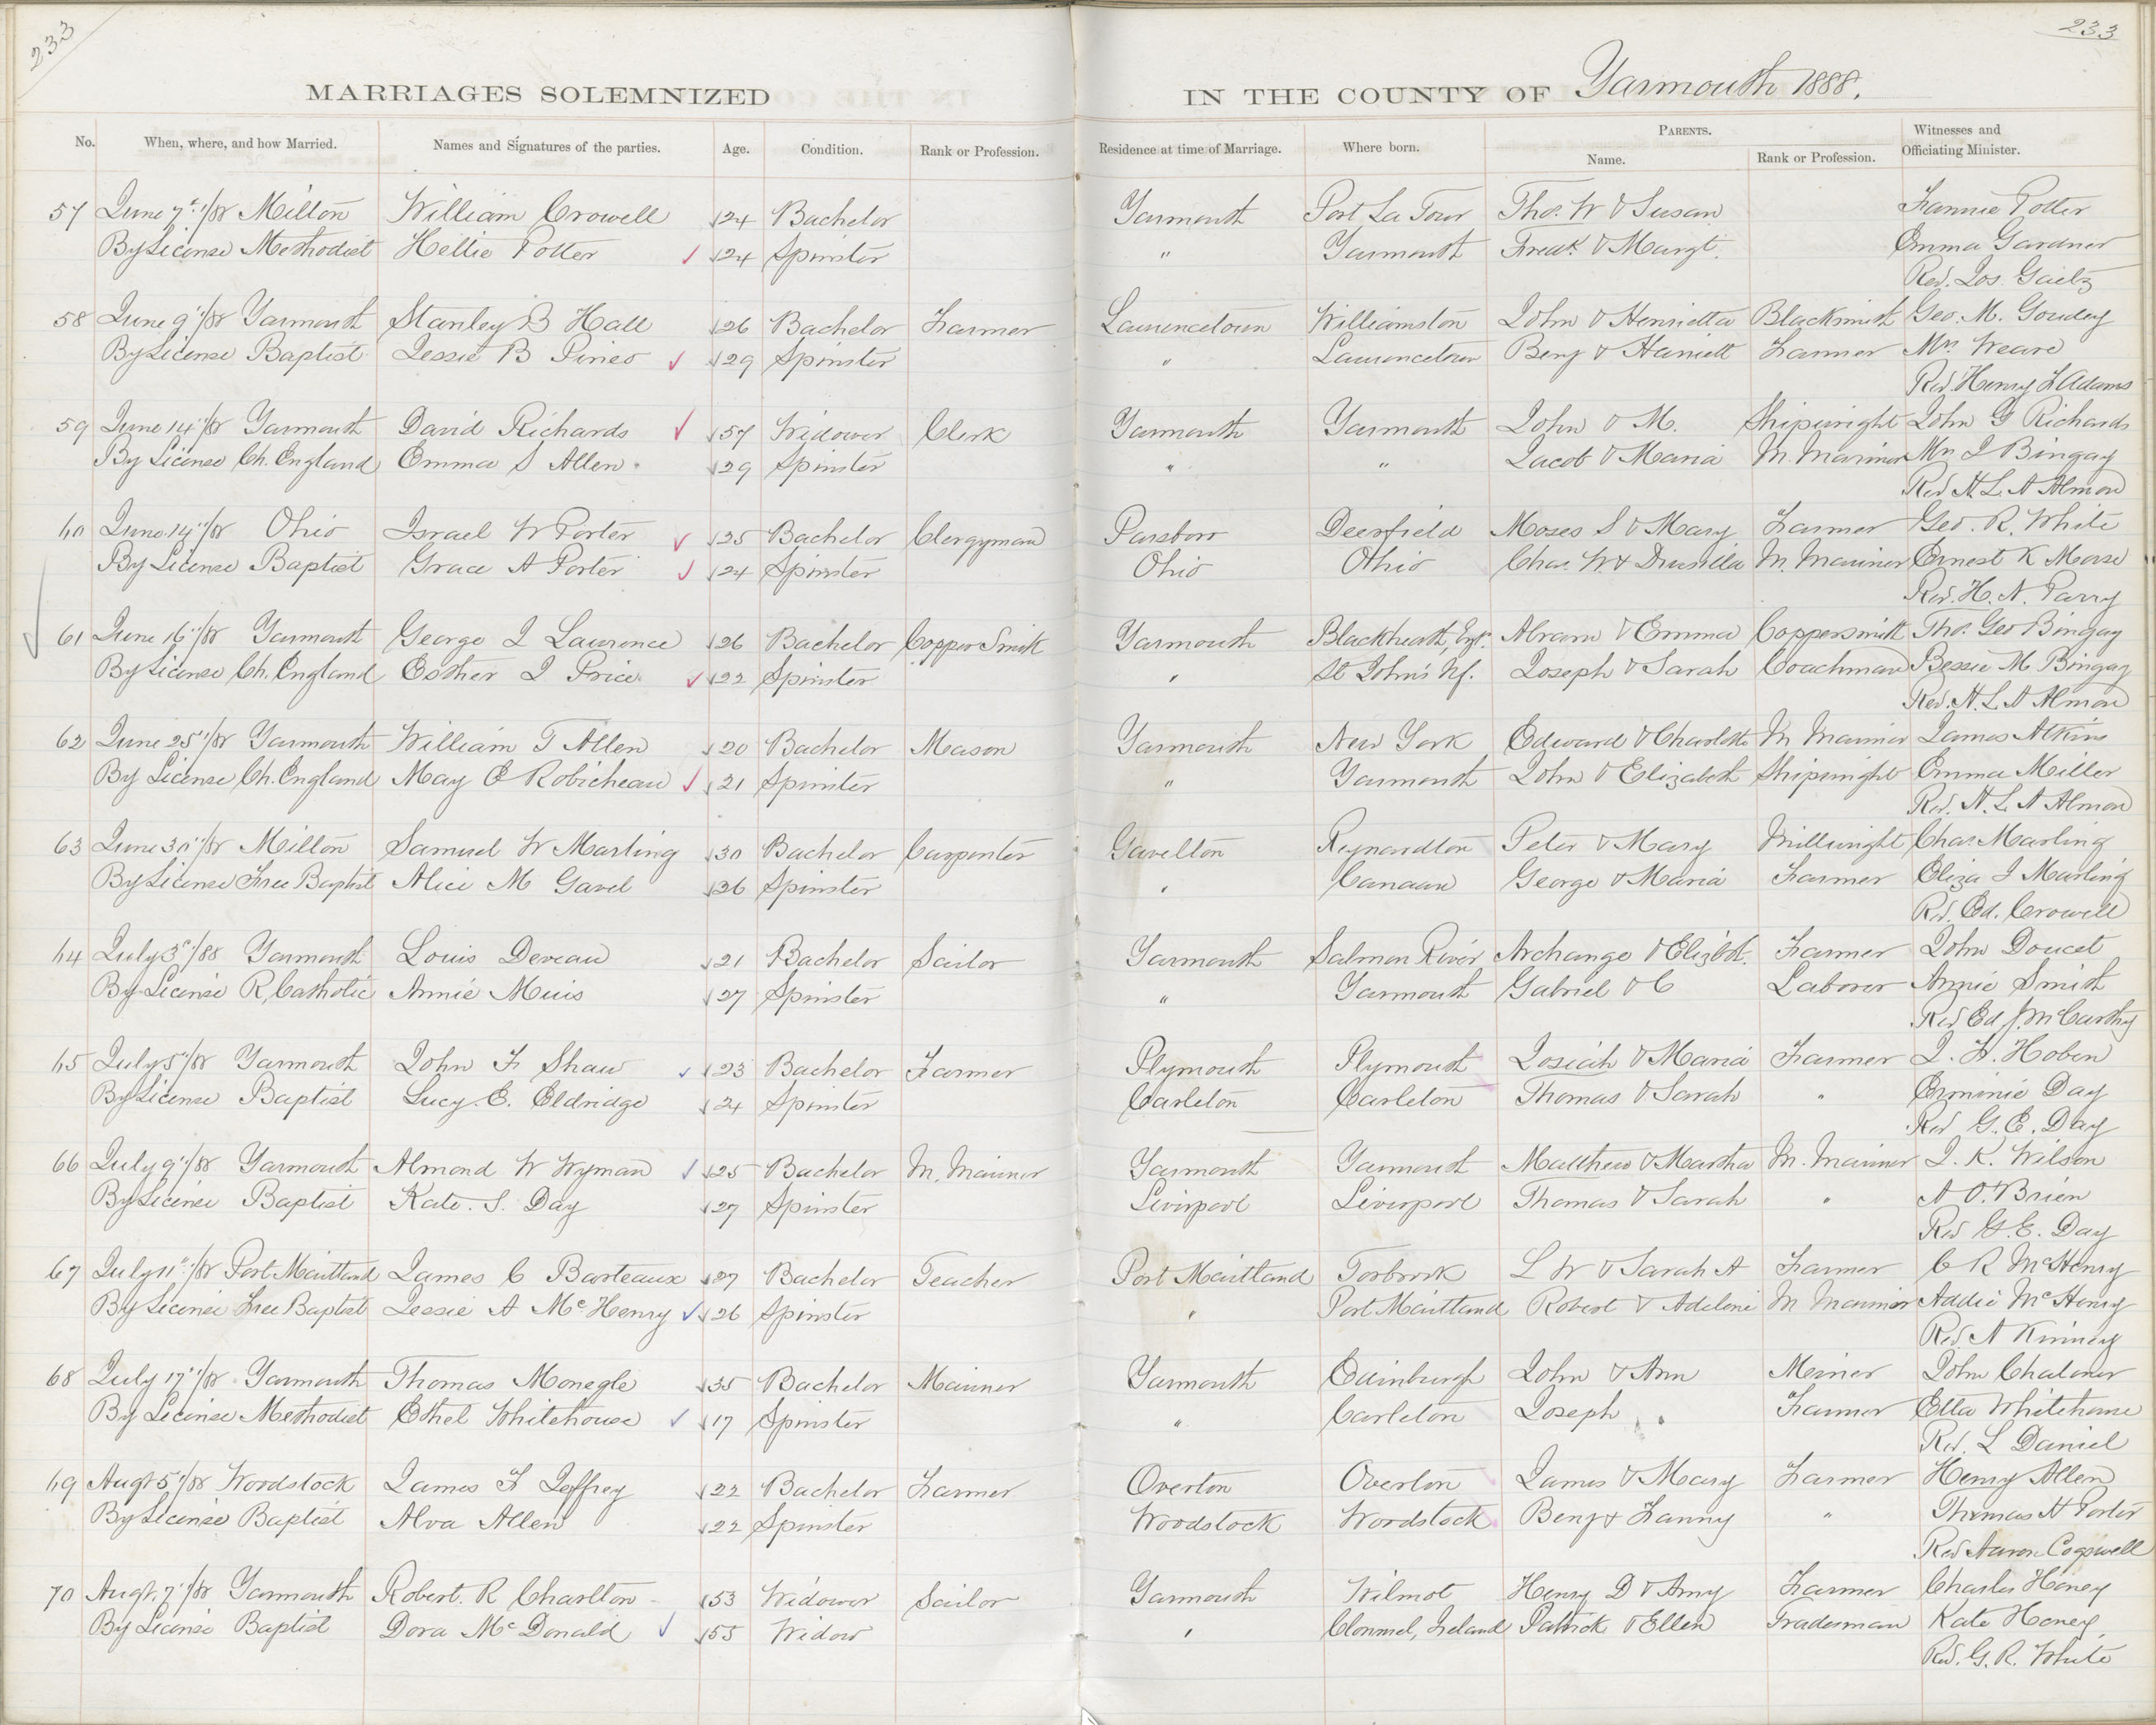 233
233
MARRIAGES SOLEMNIZED IN THE COUNTY OF Yarmouth 1888.
No. When, where, and how Married. Names and Signatures of the parties. Age. Condition. Rank or Profession. Residence at time of Marriage. Where born. PARENTS. Name. Rank or Profession. Witnesses and Officiating Minister.
57 June 7th/88 Milton William Crowell 24 Bachelor Yarmouth Port La Tour Thos. W & Susan Fannie Potter
By License Methodist Hellie Potter 24 Spinster " Yarmouth Fredk & Margt. Emma Gardner
Rev. Jos. Gaetz
58 June 9"/88 Yarmouth Stanley B Hall 26 Bachelor Farmer Laurencetown Williamston John & Henrietta Blacksmith Geo. M. Goudey
By License Baptist Jessie B Pineo 29 Spinster " Laurencetown Benj & Harriett Farmer Mrs Weare
Rev. Henry F Adams
59 June 14"/88 Yarmouth David Richards 57 Widower Clerk Yarmouth Yarmouth John & M. Shipwright John G Richards
By License Ch. England Emma S Allen. 29 Spinster " " Jacob & Maria M. Mariner Mrs J Bingay
Rev H. L. A Almon
60 June 14"/88 Ohio Israel W Porter 25 Bachelor Clergyman Parsboro Deerfield Moses S & Mary Farmer Geo. R. White
By License Baptist Grace A Porter 24 Spinster Ohio Ohio Chas W. & Drusilla M. Mariner Ernest K Morse
Rev. H. N. Parry
61 June 16"/88 Yarmouth George J Laurence 26 Bachelor Copper Smith Yarmouth Blackheath, Engd. Abram & Emma Coppersmith Thos. Geo Bingay
By License Ch. England Esther J Price. 22 Spinster " St John's Nf. Joseph & Sarah Coachman Bessie M Bingay
Rev. H. L. A Almon
62 June 25"/88 Yarmouth William T Allen 20 Bachelor Mason Yarmouth New York Edward & Charlotte M Mariner James Atkins
By License Ch. England May E Robicheau 21 Spinster " Yarmouth John & Elizabeth Shipwright Emma Miller
Rev. H. L. A Almon
63 June 30"/88 Milton Samuel W Marling 30 Bachelor Carpenter Gavelton Reynardton Peter & Mary Millwright Chas. Marling
By License Free Baptist Alice M Gavel 36 Spinster " Canaan George & Maria Farmer Eliza J Marling
Rev. Ed. Crowell
64 July 3"/88 Yarmouth Louis Deveau 21 Bachelor Sailor Yarmouth Salmon River Archange & Elizbt. Farmer John Doucet
By License R. Catholic Annie Muis 27 Spinster " Yarmouth Gabriel & C Laborer Annie Smith
Rev Ed J. McCarthy
65 July 5"/88 Yarmouth John F Shaw 23 Bachelor Farmer Plymouth Plymouth Josiah & Maria Farmer J. W. Hoben
By License Baptist Lucy. E. Eldridge 24 Spinster Carleton Carleton Thomas & Sarah " Erminie Day
Rev G. E. Day
66 July 9"/88 Yarmouth Almond W Wyman 25 Bachelor M. Mariner Yarmouth Yarmouth Matthew & Martha M. Mariner J. K. Wilson
By License Baptist Kate. S. Day 27 Spinster Liverpool Liverpool Thomas & Sarah " A O.'Brien
Rev G. E. Day
67 July 11"/88 Port Maitland James C Barteaux 27 Bachelor Teacher Port Maitland Torbrook L W & Sarah A Farmer C R McHenry
By License Free Baptist Jessie A McHenry 26 Spinster " Port Maitland Robert & Adeline M Mariner Addie McHenry
Rev A Kinney
68 July 17"/88 Yarmouth Thomas Monegle 35 Bachelor Mariner Yarmouth Edinburgh John & Ann Miner John Chaloner
By License Methodist Ethel Whitehouse 17 Spinster " Carleton Joseph Farmer Etta Whitehouse
Rev. L Daniel
69 Augt 5"/88 Woodstock James F Jeffrey 22 Bachelor Farmer Overton Overton James & Mary Farmer Henry Allen
By License Baptist Alva Allen 22 Spinster Woodstock Woodstock Benj & Fanny " Thomas H Porter
Rev Aaron Cogswell
70 Augt. 7"/88 Yarmouth Robert. R Charlton 53 Widower Sailor Yarmouth Wilmot Henry D & Amy Farmer Charles Haney
By License Baptist Dora McDonald 55 Widow " Clonmel, Ireland Patrick & Ellen Tradesman Kate Haney
Rev. G. R. White